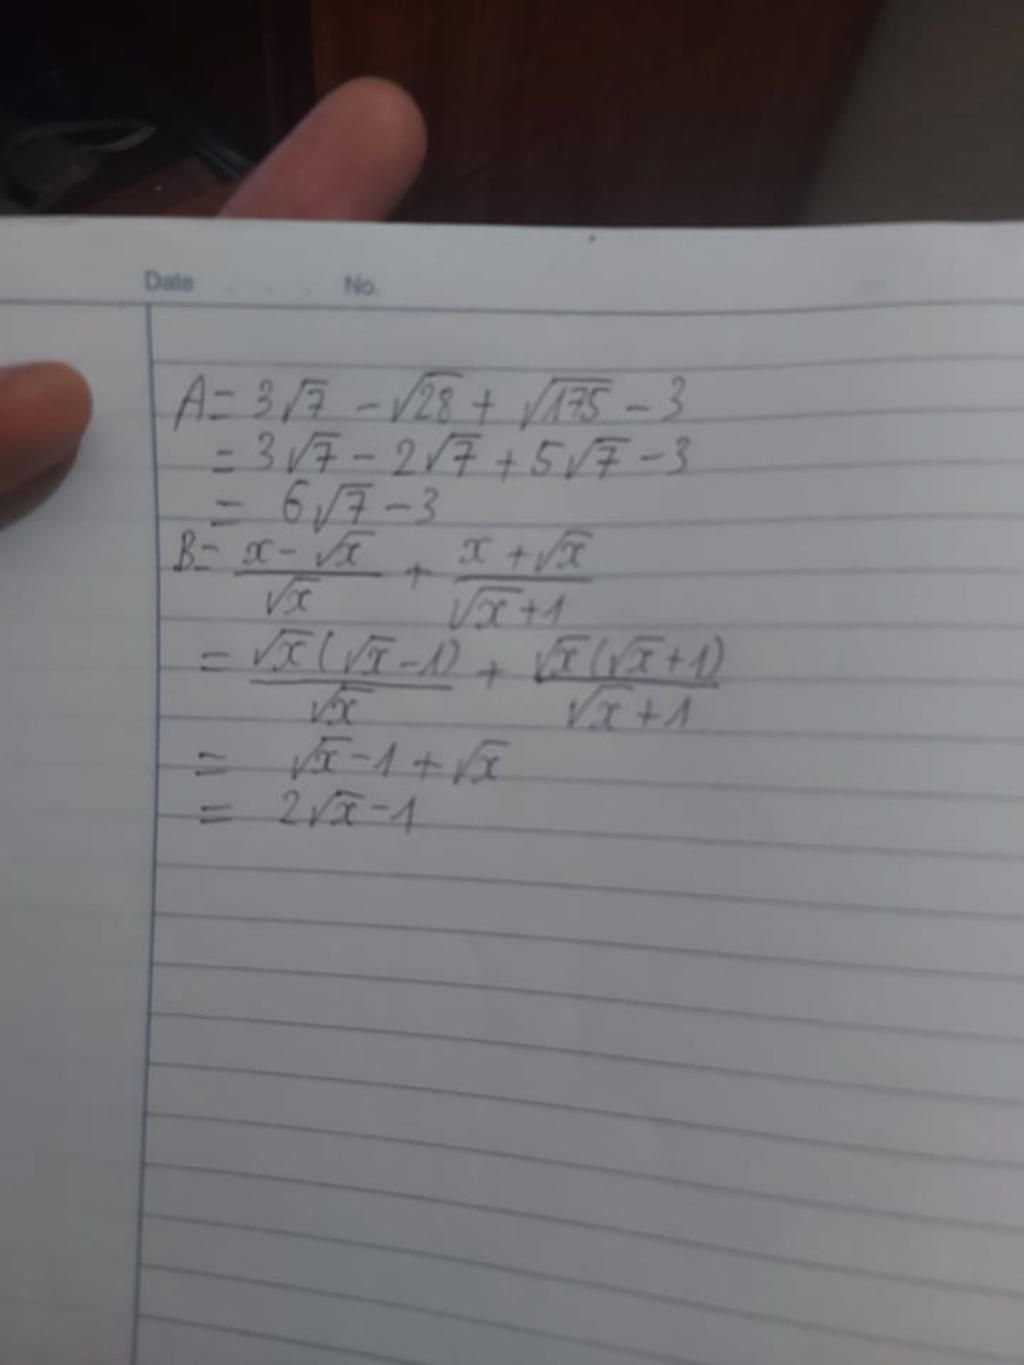 Date . . . . No.
A = 3√7 - √28 + √175 - 3
= 3√7 - 2√7 + 5√7 - 3
= 6√7 - 3
B = (x - √x)/√x + (x + √x)/(√x + 1)
= √x(√x - 1)/√x + √x(√x + 1)/(√x + 1)
= √x - 1 + √x
= 2√x - 1